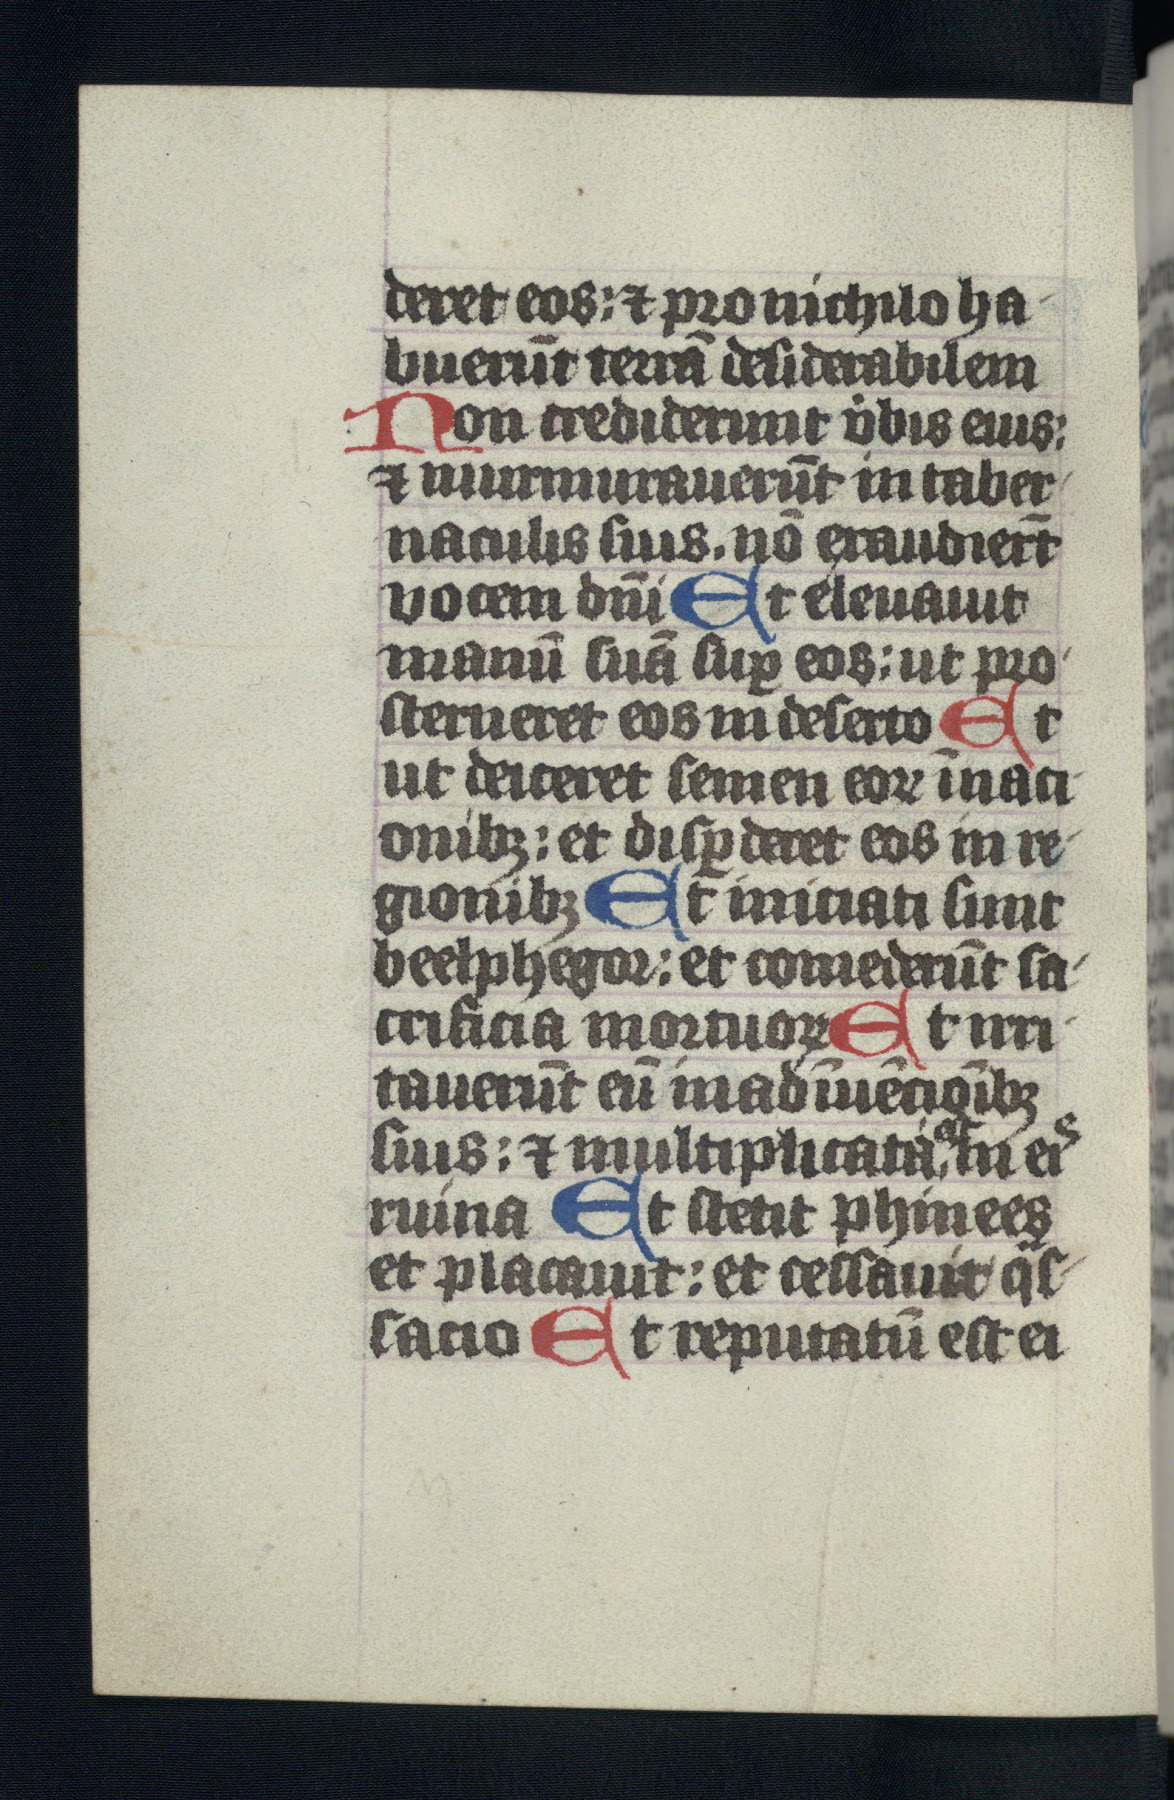 deret eos: ⁊ pro nichilo ha-
buerūt terrā desiderabilem
Non crediderunt v̄bis eius:
⁊ murmurauerūt in taber-
naculis suis. nō exaudiert̄
vocem dn̄i Et eleuauit
manū suā suꝑ eos: ut pro-
sterneret eos in deserto Et
ut deiceret semen eoꝝ ī naci
onibꝫ: et disꝑderet eos in re-
gionibꝫ Et iniciati sunt
beelphegor: et comederūt sa-
crificia mortuoꝝ Et irri-
tauerūt eū in adīuēcioībꝫ
suis: ⁊ multiplicata ē in eis
ruina Et stetit phinees
et placauit: et cessauit qͣs-
sacio Et reputatū est ei